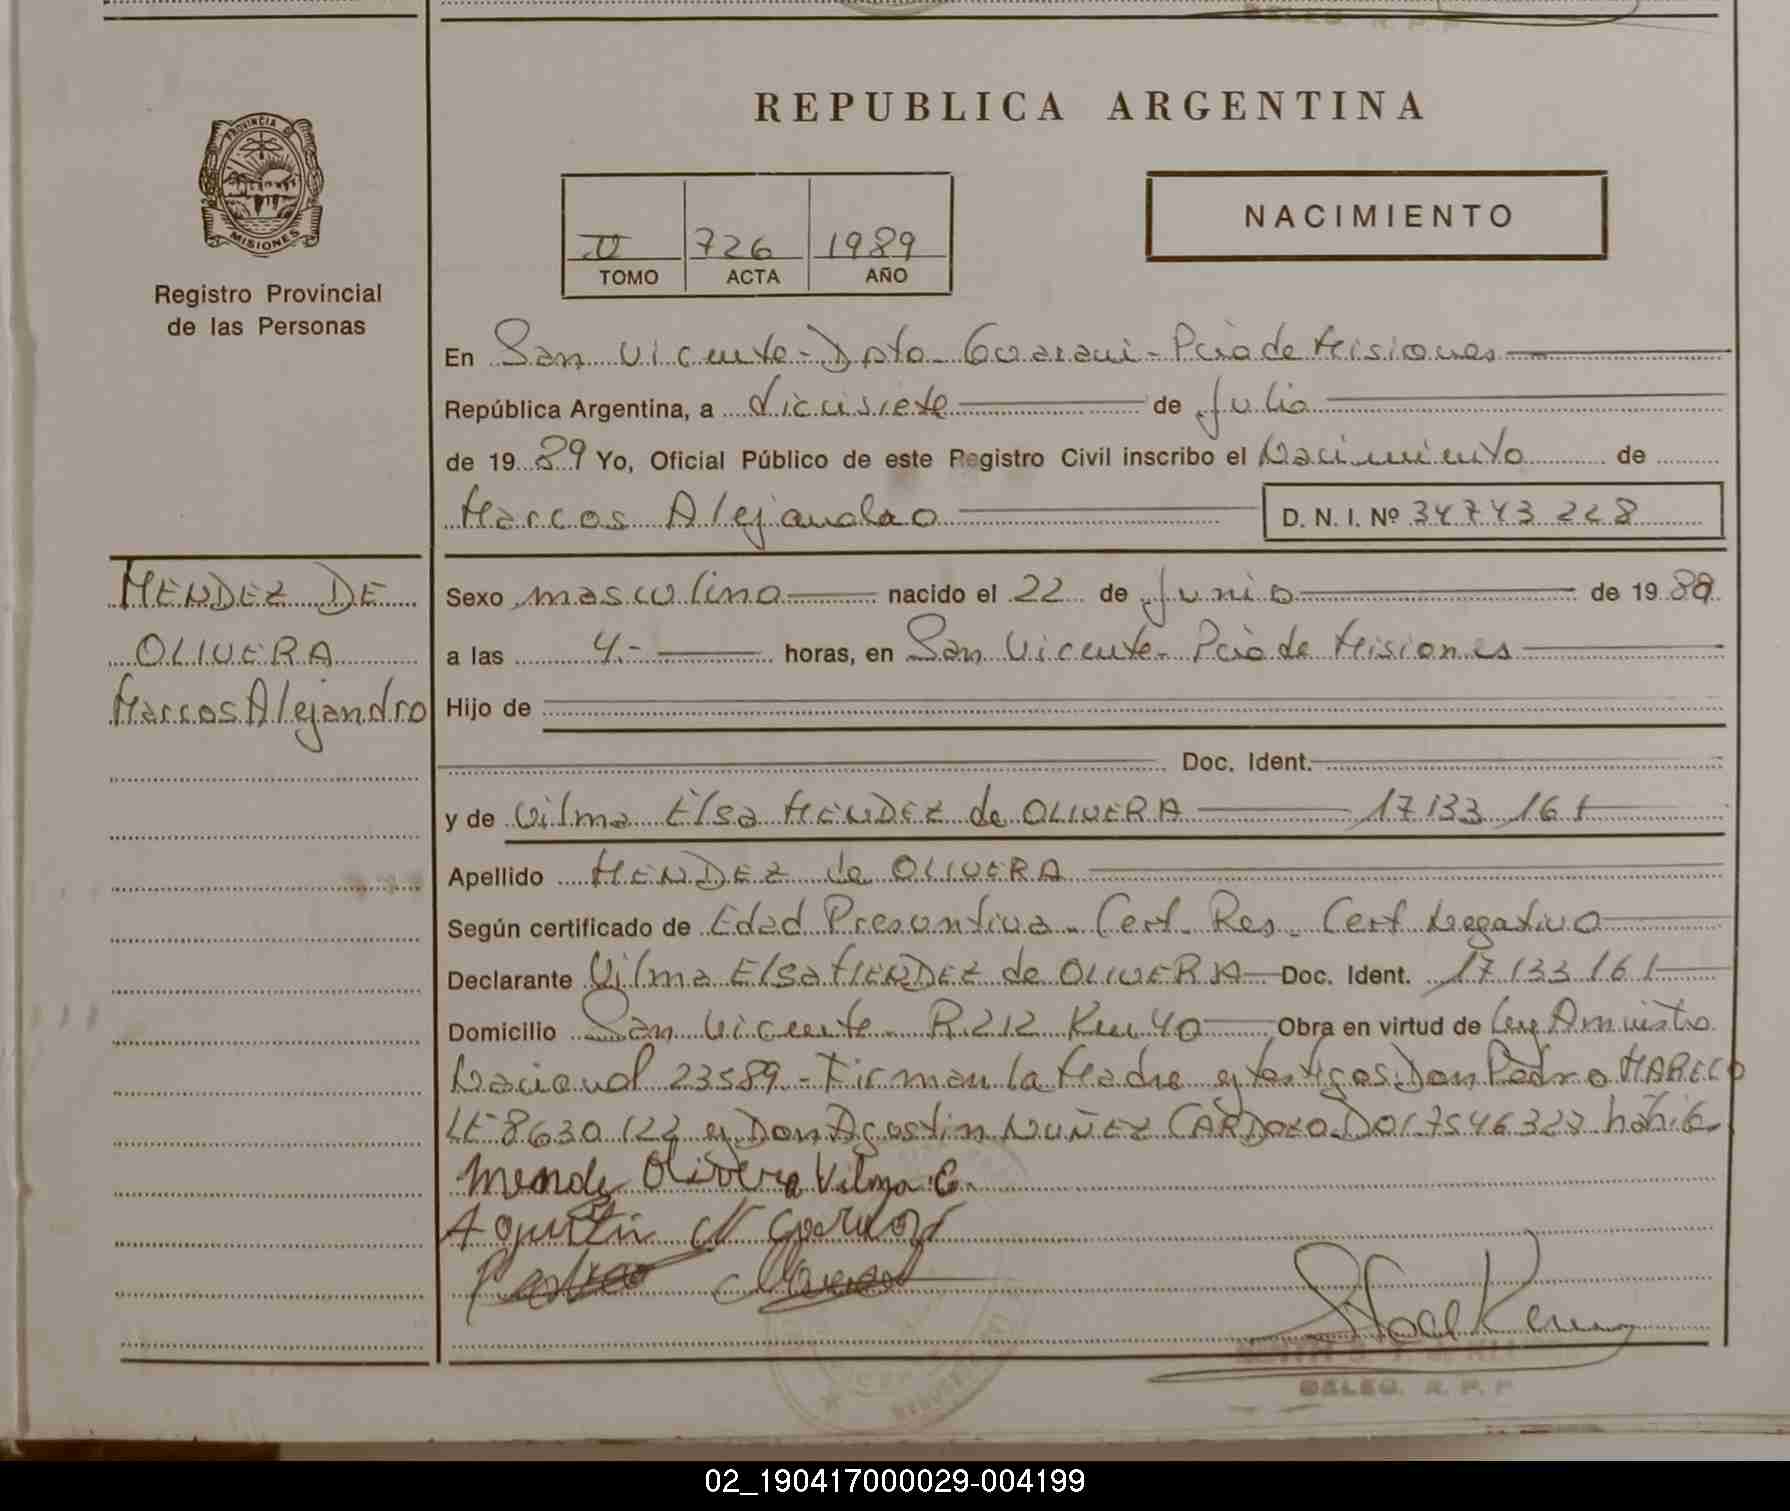 REPUBLICA ARGENTINA
PROVINCIA DE
MISIONES
Registro Provincial
de las Personas
II 726 1989
TOMO ACTA AÑO
NACIMIENTO
En San Vicente - Dpto Guarani - Pcia de Misiones
República Argentina, a diecisiete de Julio
de 19 89 Yo, Oficial Público de este Registro Civil inscribo el Nacimiento de
Marcos Alejandro D. N. I. Nº 34743 228
MENDEZ DE
OLIVERA
Marcos Alejandro
Sexo masculino nacido el 22 de Junio de 19 89
a las 4.- horas, en San Vicente - Pcia de Misiones
Hijo de
Doc. Ident.
y de Vilma Elsa MENDEZ de OLIVERA 17 133 161
Apellido MENDEZ de OLIVERA
Según certificado de Edad Presuntiva - Cert. Res - Cert Negativo
Declarante Vilma Elsa MENDEZ de OLIVERA Doc. Ident. 17 133 161
Domicilio San Vicente R.212 Km 40 Obra en virtud de Ley Amnistia
Nacional 23589 - Firman la Madre y testigos Don Pedro MARECO
LE 8630122 y Don Agostin NUÑEZ CARDOZO DNI 7546323
Mendez Olivera Vilma E.
Agustin N Cardozo
Pedro Mareco
DELEG. R. P. P
02_190417000029-004199